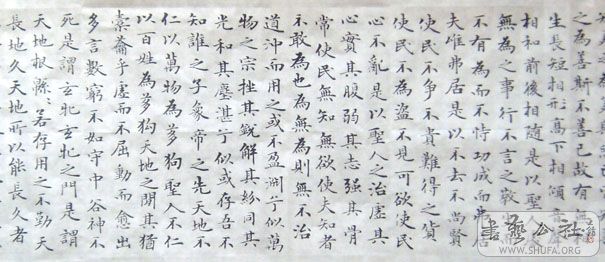 之為善斯不善已故有無相
生長短相形高下相傾音聲
相和前後相隨是以聖人處
無為之事行不言之教
不有為而不恃功成而弗居
夫惟弗居是以不去不尚賢
使民不爭不貴難得之貨
使民不為盜不見可欲使民
心不亂是以聖人之治虛其
心實其腹弱其志強其骨
常使民無知無欲使夫知者
不敢為也為無為則無不治
道沖而用之或不盈淵乎似萬
物之宗挫其銳解其紛同其
光和其塵湛兮似或存吾不
知誰之子象帝之先天地不
仁以萬物為芻狗聖人不仁
以百姓為芻狗天地之間其猶
橐籥乎虛而不屈動而愈出
多言數窮不如守中谷神不
死是謂玄牝玄牝之門是謂
天地根綿〻若存用之不勤天
長地久天地所以能長久者
書藝公社
WWW.SHUFA.ORG